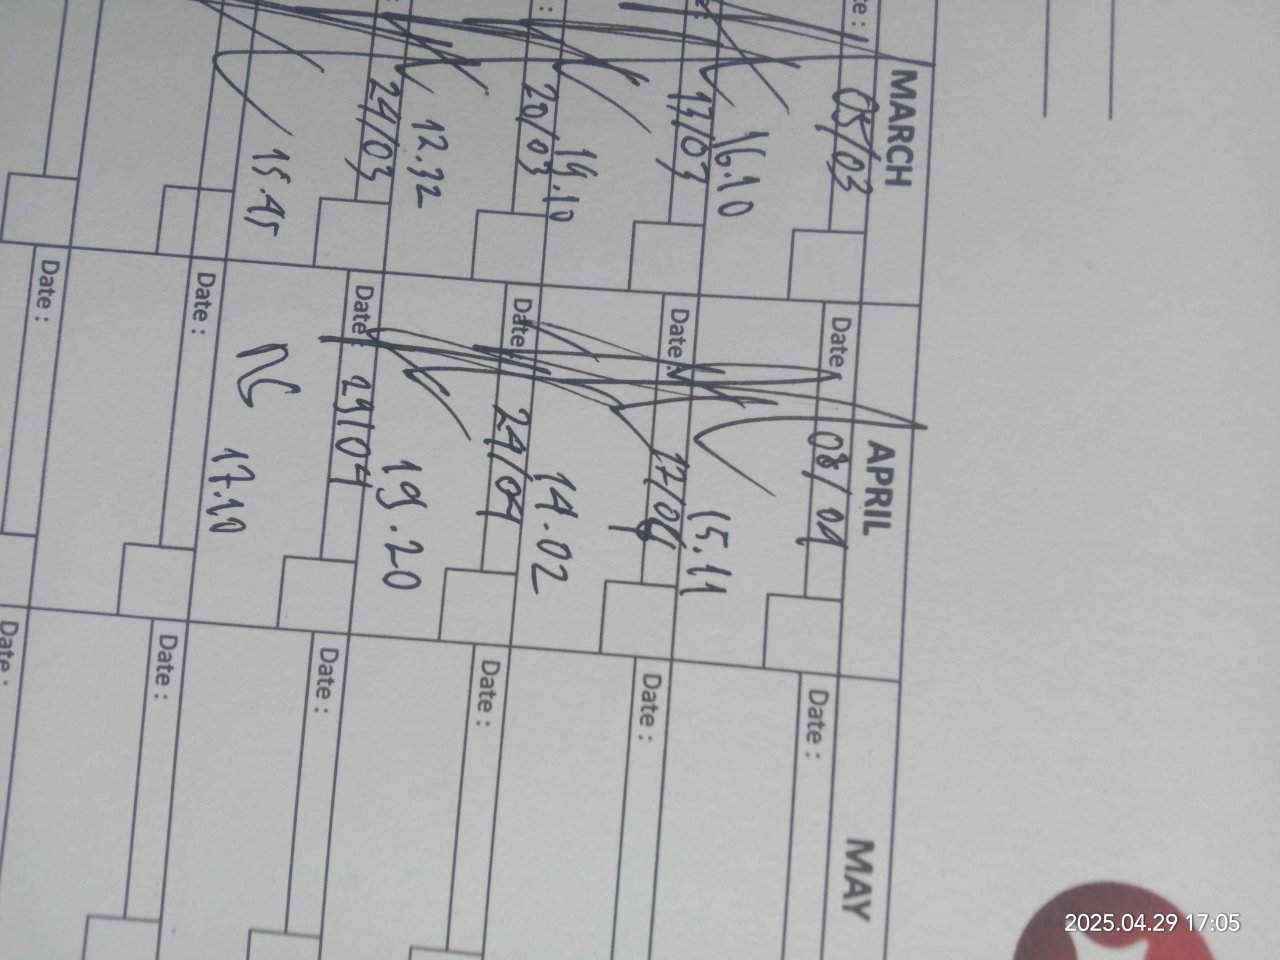 MARCH
APRIL
MAY
05/03
16.10
13/03
14.10
20/03
12.32
24/03
15.45
Date :
08/04
15.11
Date :
17/04
14.02
Date :
24/04
19.20
Date :
29/04
17.10
Date :
Date :
Date :
Date :
Date :
Date :
Date :
Date :
2025.04.29 17:05